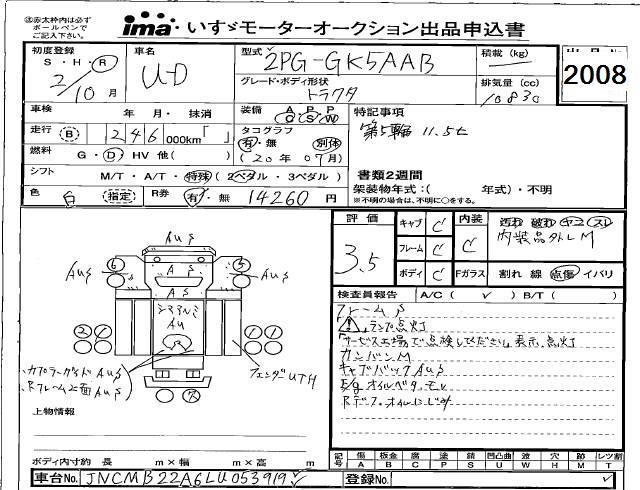 ㊟赤太枠内は必ず
ボールペンで
ご記入下さい。
ima いすゞモーターオークション出品申込書
初度登録 車名 型式 2PG-GK5AAB 積載 (kg) 出品No.
S・H・R U-D グレード・ボディ形状 2008
2/10月 トラクタ 排気量 (cc)
10830
車検 年・月・抹消 装備 A P P 特記事項
O S W 第5輪 11.5t
走行 B 246 000km「 」 タコグラフ 有・無 別体
燃料 G・D・HV 他( ) (20年07月)
シフト M/T・A/T・特殊 (2ペダル・3ペダル) 書類2週間
色 白 指定 R券 有・無 14260円 架装物年式:( 年式)・不明
※不明の場合は、不明に○をする。
評価 キャブ C 内装 汚れ 破れ ヤニ スレ
3.5 フレーム C C 内装品外しM
ボディ C Fガラス 割れ 線 点傷 イバリ
検査員報告 A/C ( ✓ ) B/T ( )
フレームS
ランプ点灯
サービス工場で点検してください 表示、点灯
カンバンM
キャブバックAuS
E/g オイルベタ、モレ
Rデフ、オイルにじみ
AuS
AuS 6 A S 5 AuS
A S
シフトアルミ
Au
2 1 1 1
カプラーガイドAuS
Rフレーム上面AuS
フェンダUTH
上物情報
ボディ内寸約 長 m×幅 m×高 m
記号 傷 板金 腐 塗 錆 凹凸曲 波 穴 跡 レンズ割
A B C P S U W H M T
車台No. JNCMB22A6LU053919 ✓ 登録No. ✓